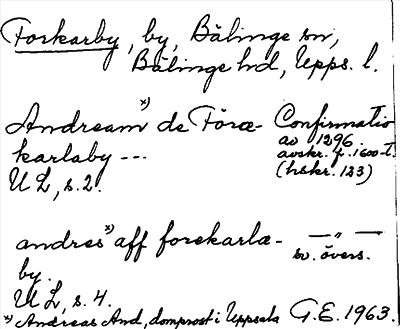 Forkarby, by, Bälinge sn,
Bälinge hd, Upps. l.
Andream ˣ⁾ de Föræ- Confirmatio
karlaby --- av 1296
avskr. fr. 1600-t.
U L, s. 2. (hskr. 123)
andres ˣ⁾ aff forekarlæ- — „ —
by. sv. övers.
U L, s. 4.
ˣ⁾ Andreas And, domprost i Uppsala G.E. 1963.